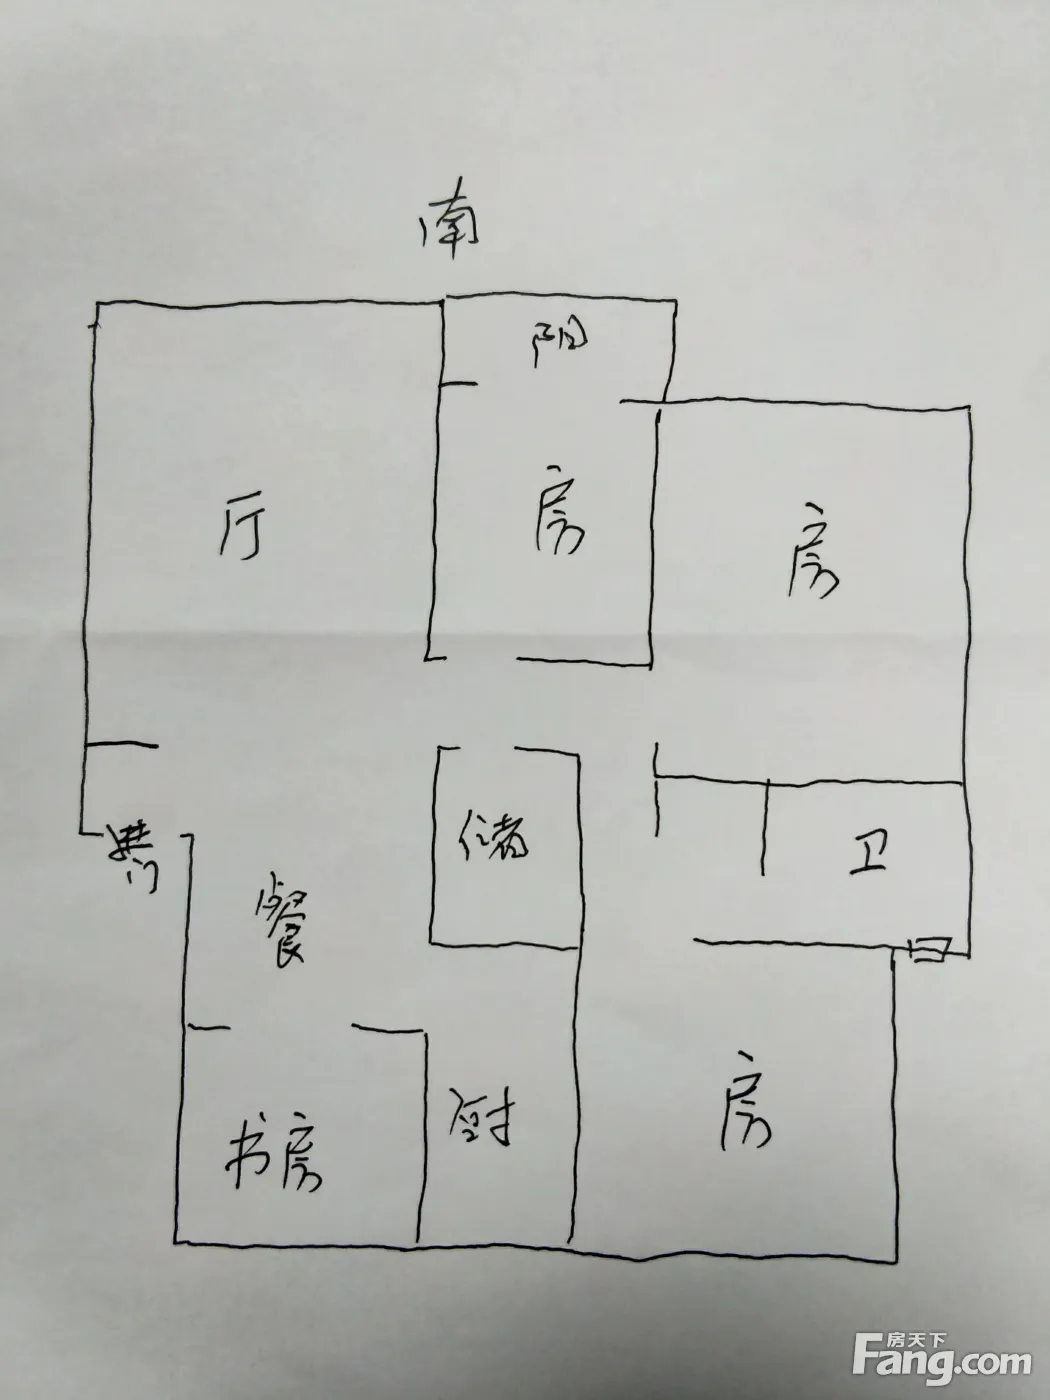 南
阳
厅
房
房
储
卫
进门
餐
书房
厨
房
房天下
Fang.com